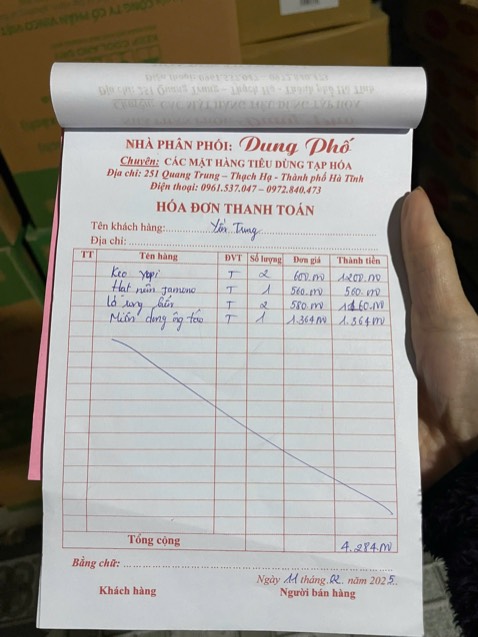 NHÀ PHÂN PHỐI: Dung Phố
Chuyên: CÁC MẶT HÀNG TIÊU DÙNG TẠP HÓA
Địa chỉ: 251 Quang Trung – Thạch Hạ - Thành phố Hà Tĩnh
Điện thoại: 0961.537.047 – 0972.840.473
HÓA ĐƠN THANH TOÁN
Tên khách hàng: Yến Trung
Địa chỉ:
TT Tên hàng ĐVT Số lượng Đơn giá Thành tiền
Kẹo Yopi T 2 600.m 1200.m
Hạt nêm T 1 560.m 560.m
T 2 580.m 1160.m
Miến dong ông táo T 1 1.364m 1.364m
Tổng cộng 4.284.m
Bằng chữ:
Ngày 11 tháng 02 năm 2025.
Khách hàng Người bán hàng